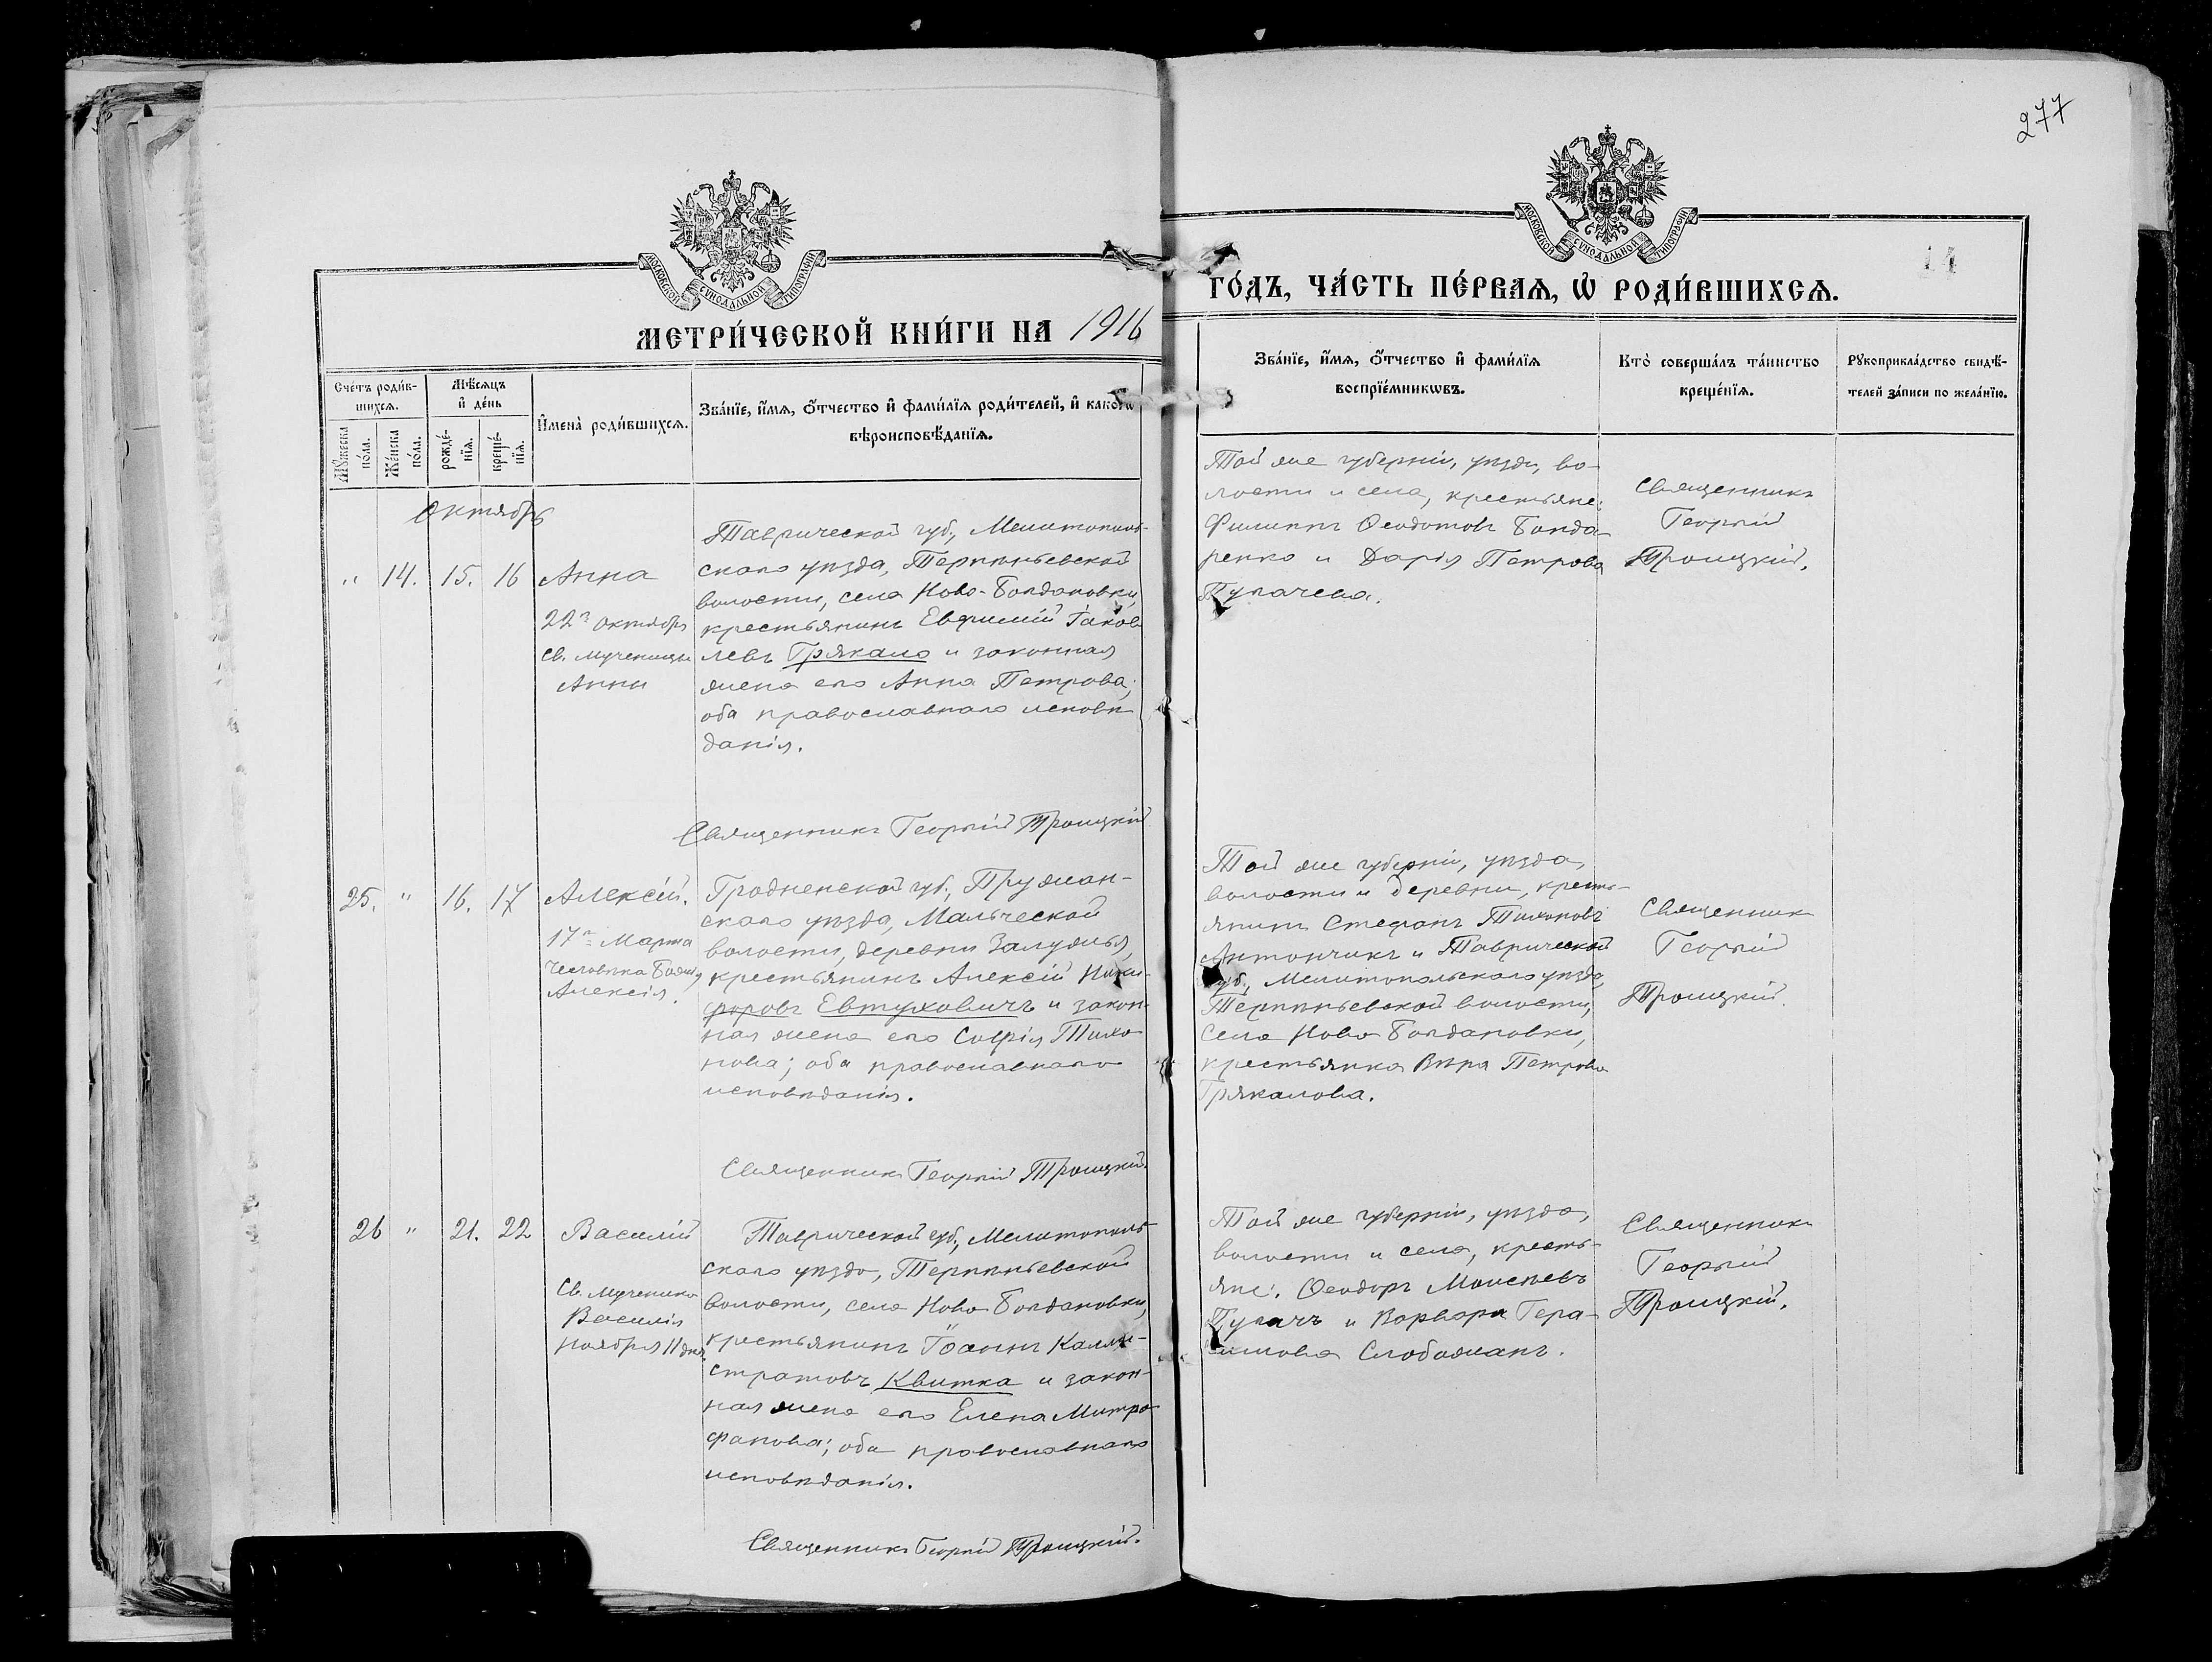 277
МОСКОВСКОЙ СѴНОДАЛЬНОЙ ТИПОГРАФІИ
МОСКОВСКОЙ СѴНОДАЛЬНОЙ ТИПОГРАФІИ
14
МЕТРИ́ЧЕСКОЙ КНИ́ГИ НА 1916
ГО́ДЪ, ЧА́СТЬ ПЕ́РВАѦ, Ѽ РОДИ́ВШИХСѦ.
Сче́тъ роди́в-
шихсѧ.
Мѣ́сѧцъ
и҆ де́нь
Мꙋ́жеска
по́ла.
Же́нска
по́ла.
рожде́-
нїѧ.
креще́-
нїѧ.
И҆мена̀ роди́вшихсѧ.
Зва́нїе, и҆́мѧ, ѻ҆́тчество и҆ фами́лїѧ роди́телей, и҆ како́гѡ
вѣроисповѣ́данїѧ.
Зва́нїе, и҆́мѧ, ѻ҆́тчество и҆ фами́лїѧ
воспрїе́мникѡвъ.
Кто̀ соверша́лъ та́инство
креще́нїѧ.
Рꙋкоприкла́дство свидѣ́-
телей за́писи по жела́нїю.
Октябрь
" 14. 15. 16
Анна
22го октября
Св. мученицы
Анны
Таврической губ., Мелитополь-
скаго уѣзда, Терпѣньевской
волости, села Ново-Богдановки,
крестьянинъ Евфимій Іаков-
левъ Грякало и законная
жена его Анна Петрова;
оба православнаго исповѣ-
данія.
Священникъ Георгій Троицкій
Той же губерніи, уѣзда, во-
лости и села, крестьяне:
Филиппъ Ѳеодотовъ Бонда-
ренко и Дарія Петрова
Пугачева.
Священникъ
Георгій
Троицкій.
25. " 16. 17
Алексій.
17го Марта
Человѣка Божія
Алексія.
Гродненской губ., Пружан-
скаго уѣзда, Мальческой
волости, деревни Залужья,
крестьянинъ Алексій Ники-
форовъ Евтуховичъ и закон-
ная жена его Софія Тихо-
нова; оба православнаго
исповѣданія.
Священникъ Георгій Троицкій.
Той же губерніи, уѣзда,
волости и деревни, кресть-
янинъ Стефанъ Тихоновъ
Антончикъ и Таврической
губ., Мелитопольскаго уѣзда,
Терпѣньевской волости,
села Ново Богдановки,
крестьянка Вѣра Петрова
Грякалова.
Священникъ
Георгій
Троицкій.
26 " 21. 22
Василій
Св. мученика
Василія
ноября 11 дня.
Таврической губ., Мелитополь-
скаго уѣзда, Терпѣньевской
волости, села Ново Богдановки,
крестьянинъ Іоаннъ Калли-
стратовъ Квитка и закон-
ная жена его Елена Митро-
фанова; оба православнаго
исповѣданія.
Священникъ Георгій Троицкій.
Той же губерніи, уѣзда,
волости и села, кресть-
яне: Ѳеодоръ Моисѣевъ
Пугачъ и Варвара Гера-
симова Слобожанъ.
Священникъ
Георгій
Троицкій.